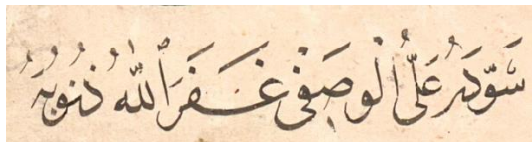 سَوَّدَهُ عَلِىُّ الْوَصْفِى غَفَرَ اللّٰهُ ذُنُوبَهُ